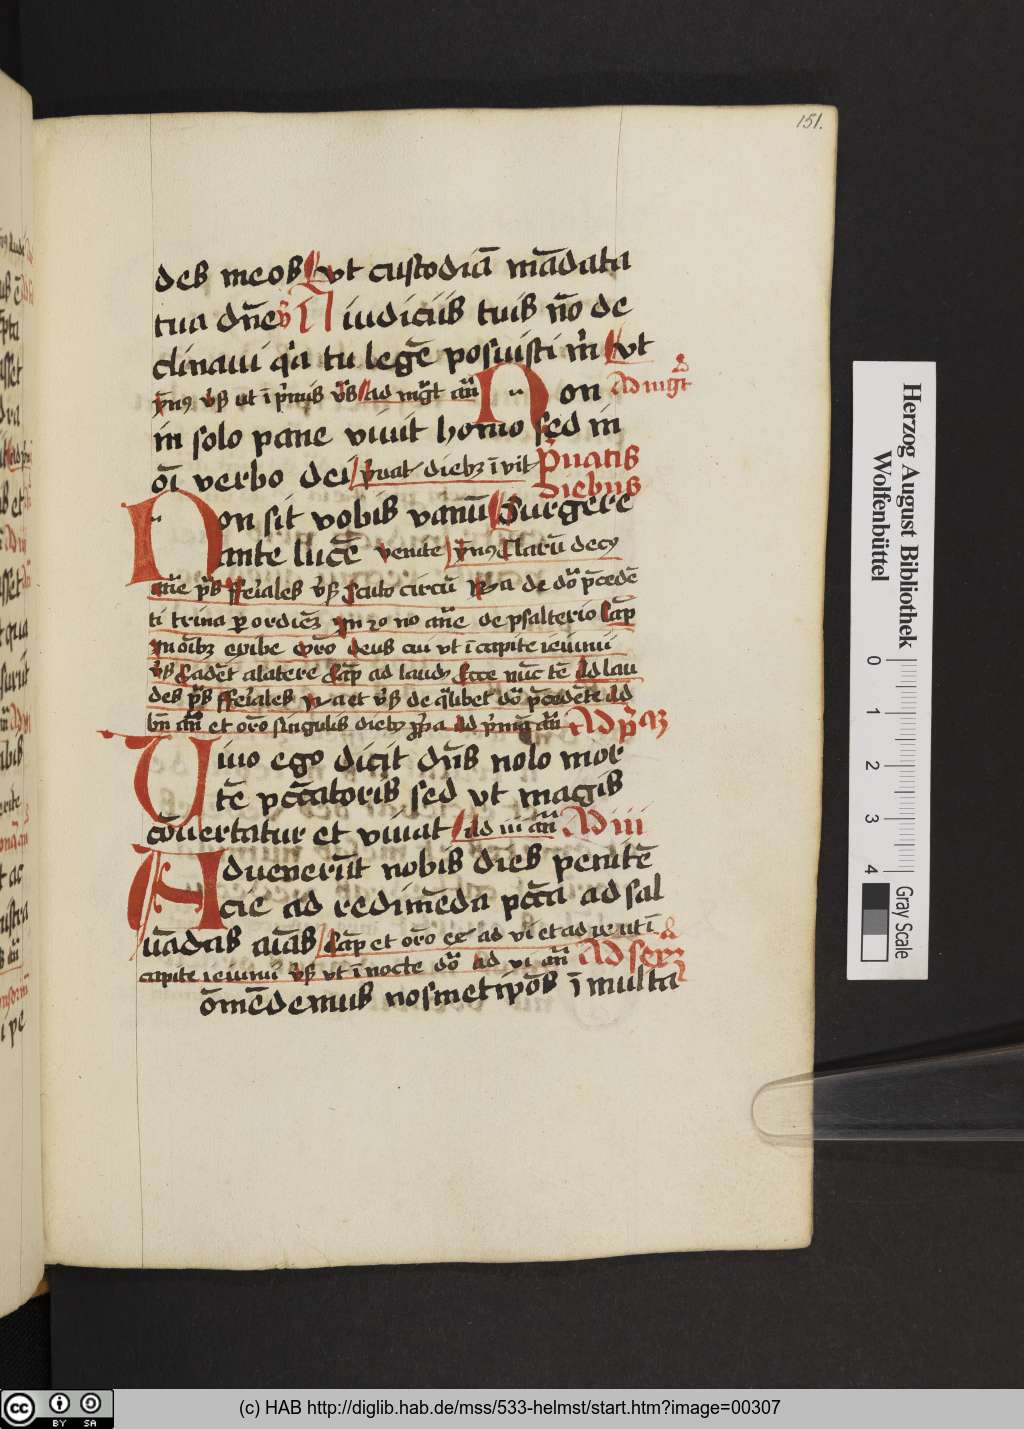 151.
des meos Vt custodiā mādata
tua dn̄e v̄ A iudiciis tuis nō de
clinaui q̄a tu legē posuisti m̄ Vt
ymꝰ v̄s ut ī p̄mis v̄s ad mḡt an̄ Non Ad mgt̄
in solo pane viuit homo sed in
oī verbo dei p̄uat dieb; īvit P̄uatis
diebus
Non sit vobis vanū Surgere
ante lucē venite ymꝰ Clarū decꝰ
an̄e p̄s fferiales v̄s Scuto circū de do p̄cedē
ti trina per ordiēz In no an̄e de psalterio Cap̄
In oīb; oro deus cui vt ī capite ieiunii
v̄s Cadēt alatere Cap̄ ad laudꝫ Ecce nūc tē Ad lau
des p̄s fferiales et v̄s de q̄libet do p̄cedēte Ad
bn̄ an̄ et oro singulis dieb; p̄pa Ad p̄mā an̄ Ad p̄az
Viuo ego dicit dn̄s nolo mor
tē pcc̄atoris sed vt magis
cōuertatur et viuat Ad iii an̄ Ad iii
Aduenerūt nobis dies penitē
cie ad redimēda pcc̄a ad sal
uādas aīas Cap̄ et oro ad vi et ad ī
capite ieiunii v̄s vt ī nocte do Ad vi an̄ Ad sexꝫ
ōmēdemus nosmetip̄os ī multa
Herzog August Bibliothek
Wolfenbüttel
0 1 2 3 4
Gray Scale
cc BY SA
(c) HAB http://diglib.hab.de/mss/533-helmst/start.htm?image=00307